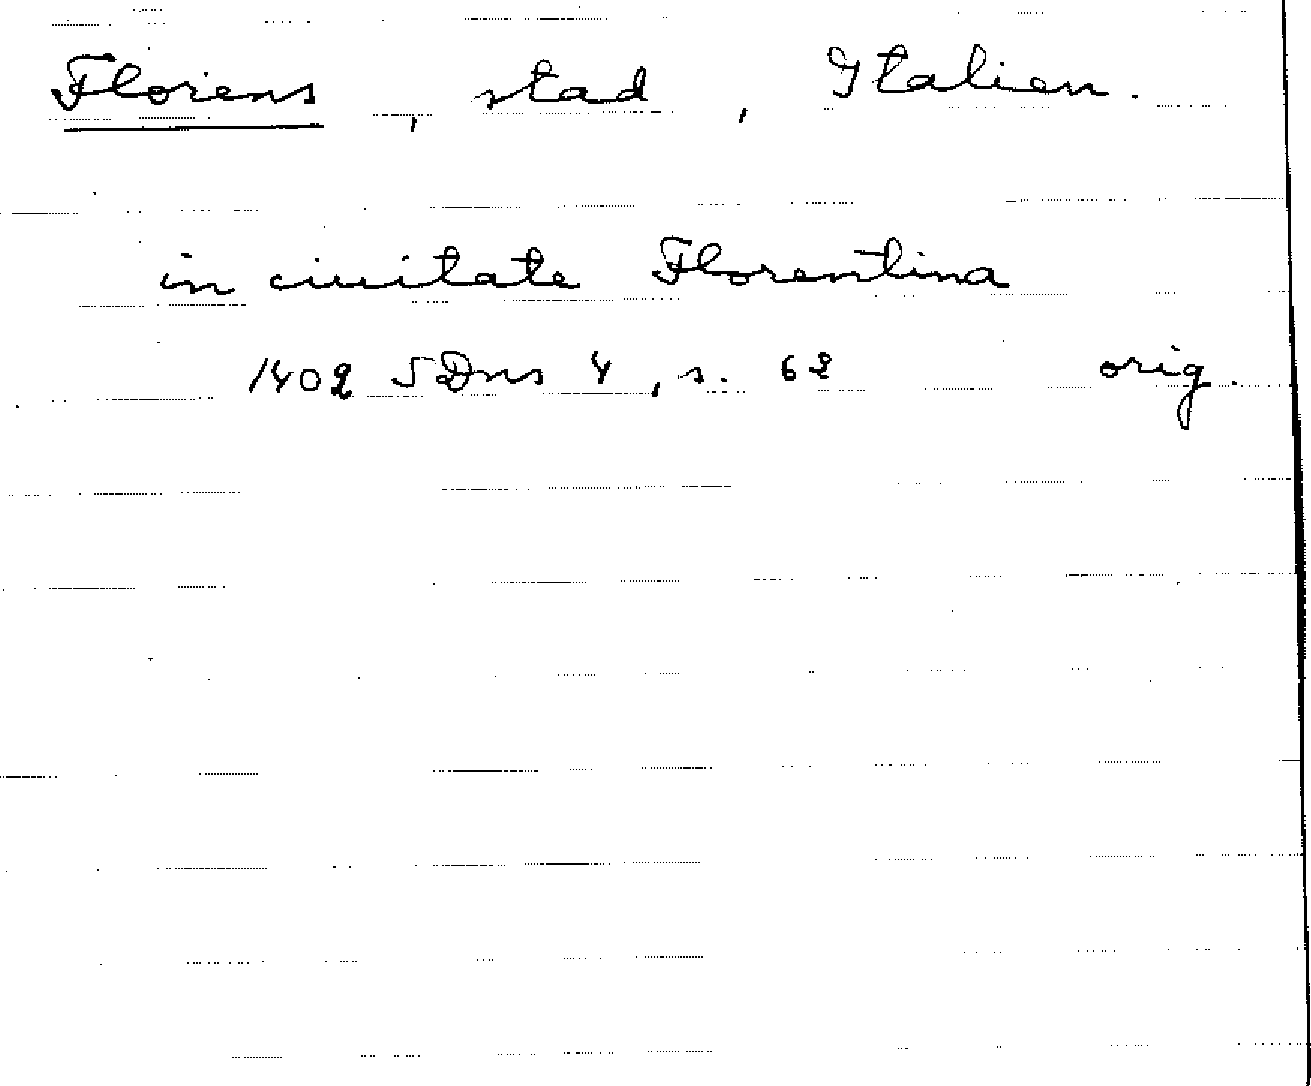 Florens, stad, Italien.
in ciuitate Florentina
1402 SDns 4, s. 62 orig.